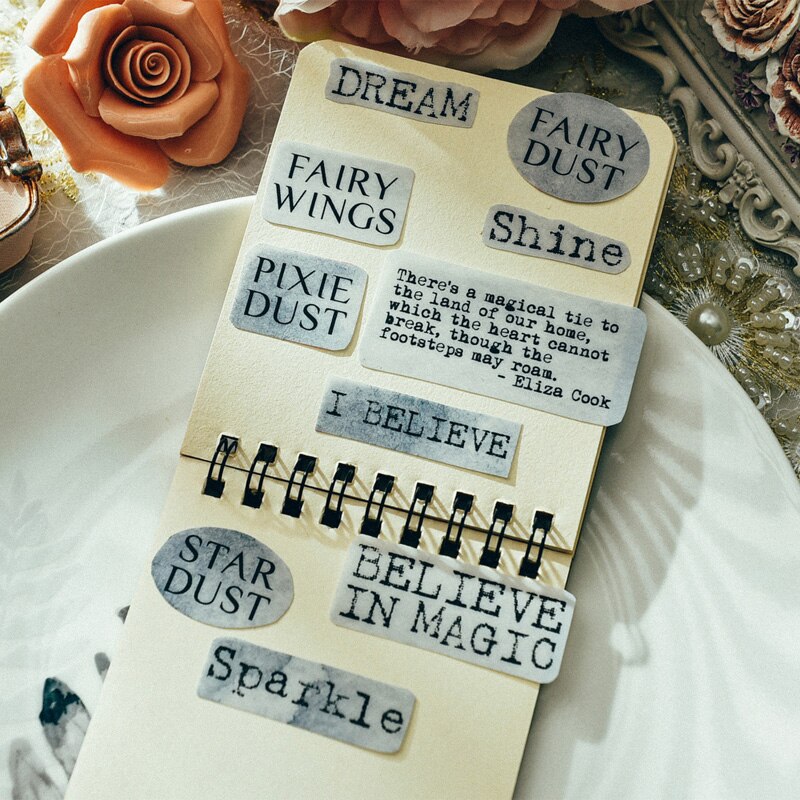 DREAM
FAIRY
DUST
FAIRY
WINGS
Shine
PIXIE
DUST
There's a magical tie to
the land of our home,
which the heart cannot
break, though the
footsteps may roam.
- Eliza Cook
I BELIEVE
STAR
DUST
BELIEVE
IN MAGIC
Sparkle